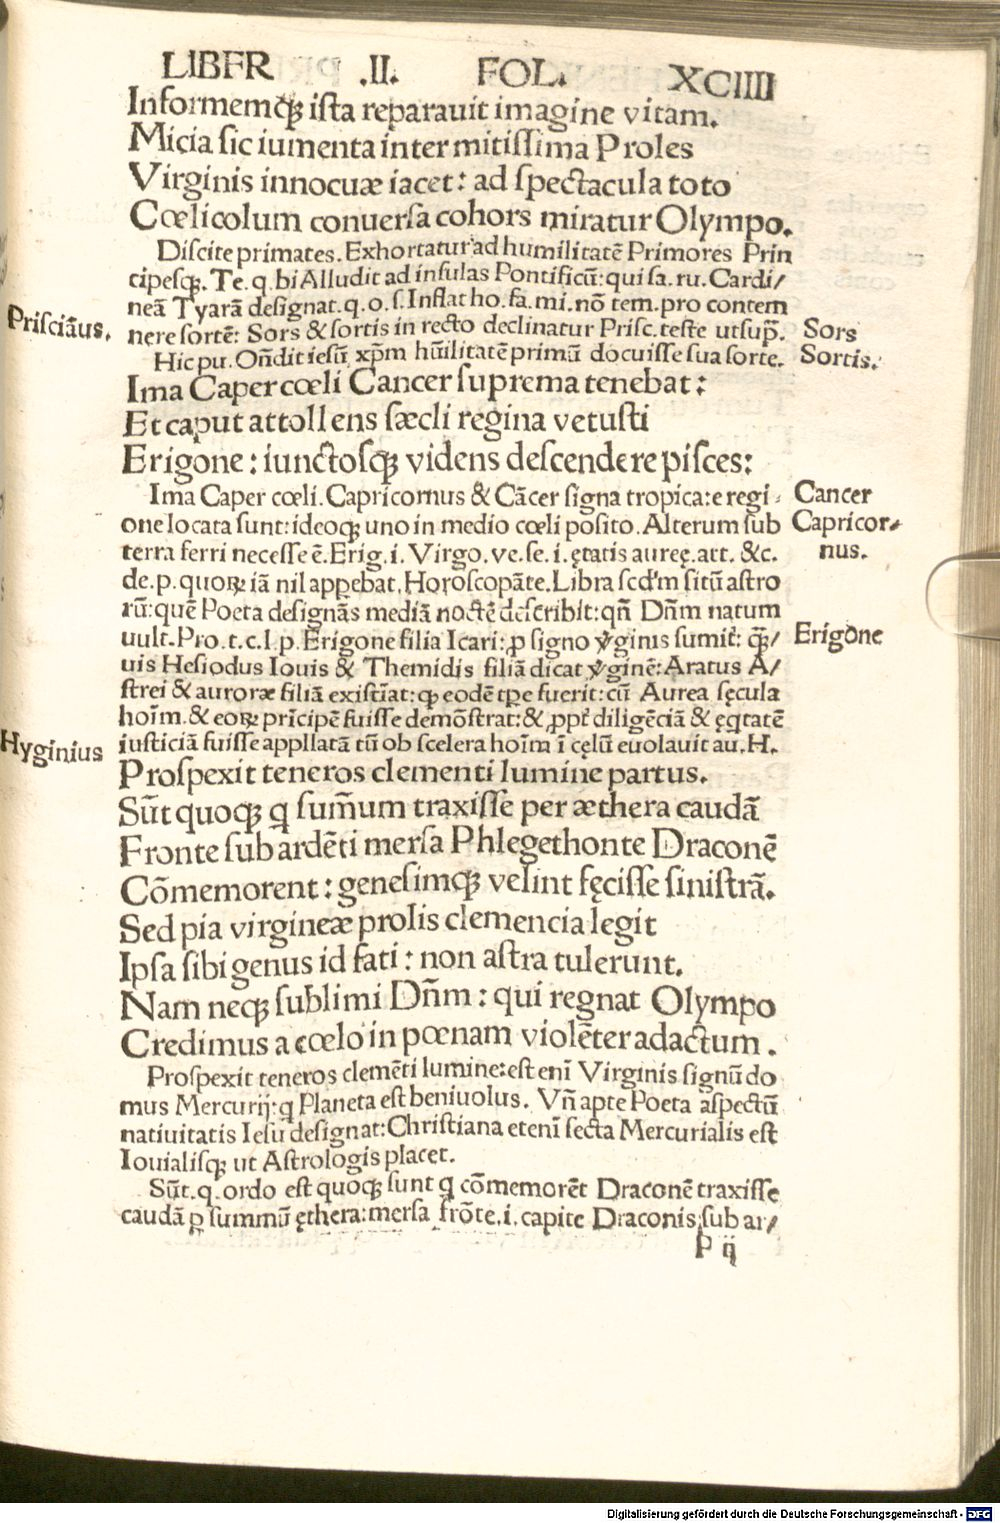 LIBER .II. FOL. XCIIII
Informemqꝫ ista reparauit imagine vitam.
Micia sic iumenta inter mitissima Proles
Virginis innocuæ iacet: ad spectacula toto
Cœlicolum conuersa cohors miratur Olympo.
Discite primates. Exhortatur ad humilitatē Primores Prin
cipesqꝫ. Te. q. bi Alludit ad insulas Pontificū: qui sa. ru. Cardi/
neā Tyarā designat. q. o. s. Inflat ho. fa. mi. nō tem. pro contem
Prisciāus. nere sortē: Sors & sortis in recto declinatur Prisc. teste utsup̄. Sors
Hic pu. Oñdit iesū xp̄m hūilitatē primū docuisse sua sorte. Sortis.
Ima Caper cœli Cancer suprema tenebat:
Et caput attollens sæcli regina vetusti
Erigone: iunctosqꝫ videns descendere pisces:
Ima Caper cœli. Capricornus & Cācer signa tropica: e regi Cancer
one locata sunt: ideoqꝫ uno in medio cœli posito. Alterum sub Capricor-
terra ferri necesse ē. Erig. i. Virgo. ve. se. i. ętatis aureę. att. &c. nus.
de. p. quoꝝ iā nil apꝑebat. Horoscopāte. Libra scd'm sitū astro
rū: quē Poeta designās mediā noctē describit: qñ Dñm natum
uult. Pro. t. c. l. p. Erigone filia Icari: ꝓ signo v̄ginis sumit̄: Erigone
uis Hesiodus Iouis & Themidis filiā dicat v̄ginē: Aratus A/
strei & auroræ filiā existīat: ꝙ eodē tꝑe fuerit: cū Aurea sęcula
hoīm. & eoꝝ prīcipē fuisse demōstrat: & ꝓpt̄ diligēciā & ęqtatē
Hyginius iusticiā fuisse appllatā tū ob scelera hoīm ī cęlū euolauit au. H.
Prospexit teneros clementi lumine partus.
Sūt quoqꝫ q sum̄um traxisse per æthera caudā
Fronte sub ardēti mersa Phlegethonte Draconē
Cōmemorent: genesimqꝫ velint fęcisse sinistrā.
Sed pia virgineæ prolis clemencia legit
Ipsa sibi genus id fati: non astra tulerunt.
Nam neqꝫ sublimi Dñm: qui regnat Olympo
Credimus a cœlo in pœnam violēter adactum.
Prospexit teneros clemēti lumine: est enī Virginis signū do
mus Mercurij: q Planeta est beniuolus. Vñ apte Poeta aspectū
natiuitatis Iesu designat: Christiana etenī secta Mercurialis est
Iouialisqꝫ ut Astrologis placet.
Sūt. q. ordo est quoqꝫ sunt q cōmemorēt Draconē traxisse
caudā ꝑ summū ęthera: mersa frōte. i. capite Draconis sub ar/
P ij
Digitalisierung gefördert durch die Deutsche Forschungsgemeinschaft - DFG